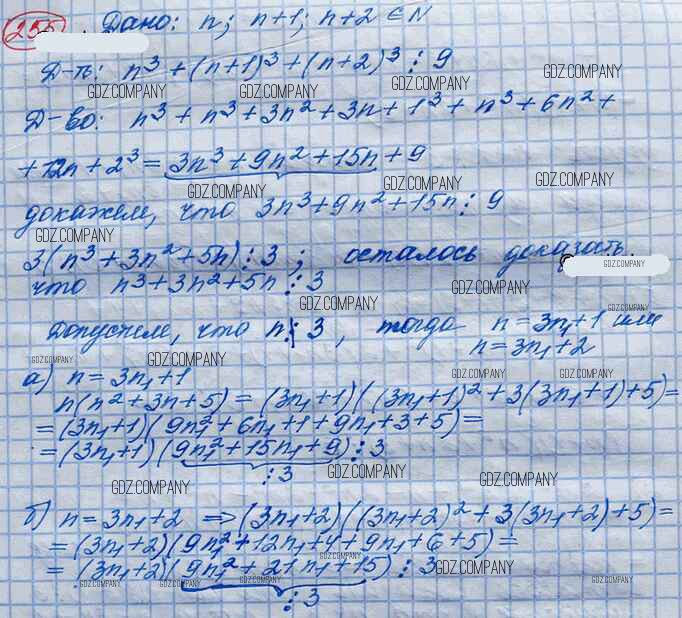 255 Дано: n; n+1; n+2 ∈ N
Д-ть: n³ + (n+1)³ + (n+2)³ ⋮ 9
GDZ.COMPANY GDZ.COMPANY GDZ.COMPANY GDZ.COMPANY
Д-во: n³ + n³ + 3n² + 3n + 1³ + n³ + 6n² +
+ 12n + 2³ = 3n³ + 9n² + 15n + 9
GDZ.COMPANY GDZ.COMPANY GDZ.COMPANY
докажем, что 3n³ + 9n² + 15n ⋮ 9
GDZ.COMPANY
3(n³ + 3n² + 5n) ⋮ 3 ; осталось доказать,
GDZ.COMPANY
что n³ + 3n² + 5n ⋮ 3
GDZ.COMPANY GDZ.COMPANY GDZ.COMPANY
Допустим, что n ⋮̸ 3, тогда n = 3n₁ + 1 или
n = 3n₁ + 2
GDZ.COMPANY GDZ.COMPANY
а) n = 3n₁ + 1
GDZ.COMPANY GDZ.COMPANY
n(n² + 3n + 5) = (3n₁ + 1)((3n₁ + 1)² + 3(3n₁ + 1) + 5) =
= (3n₁ + 1)(9n₁² + 6n₁ + 1 + 9n₁ + 3 + 5) =
= (3n₁ + 1)(9n₁² + 15n₁ + 9) ⋮ 3
⋮ 3
GDZ.COMPANY GDZ.COMPANY GDZ.COMPANY
б) n = 3n₁ + 2 ⇒ (3n₁ + 2)((3n₁ + 2)² + 3(3n₁ + 2) + 5) =
= (3n₁ + 2)(9n₁² + 12n₁ + 4 + 9n₁ + 6 + 5) =
= (3n₁ + 2)(9n₁² + 21n₁ + 15) ⋮ 3
GDZ.COMPANY
GDZ.COMPANY GDZ.COMPANY GDZ.COMPANY GDZ.COMPANY
⋮ 3